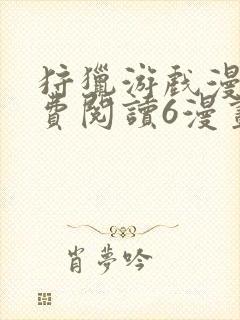 狩獵游戲漫
費閱讀6漫畫
肖夢吟